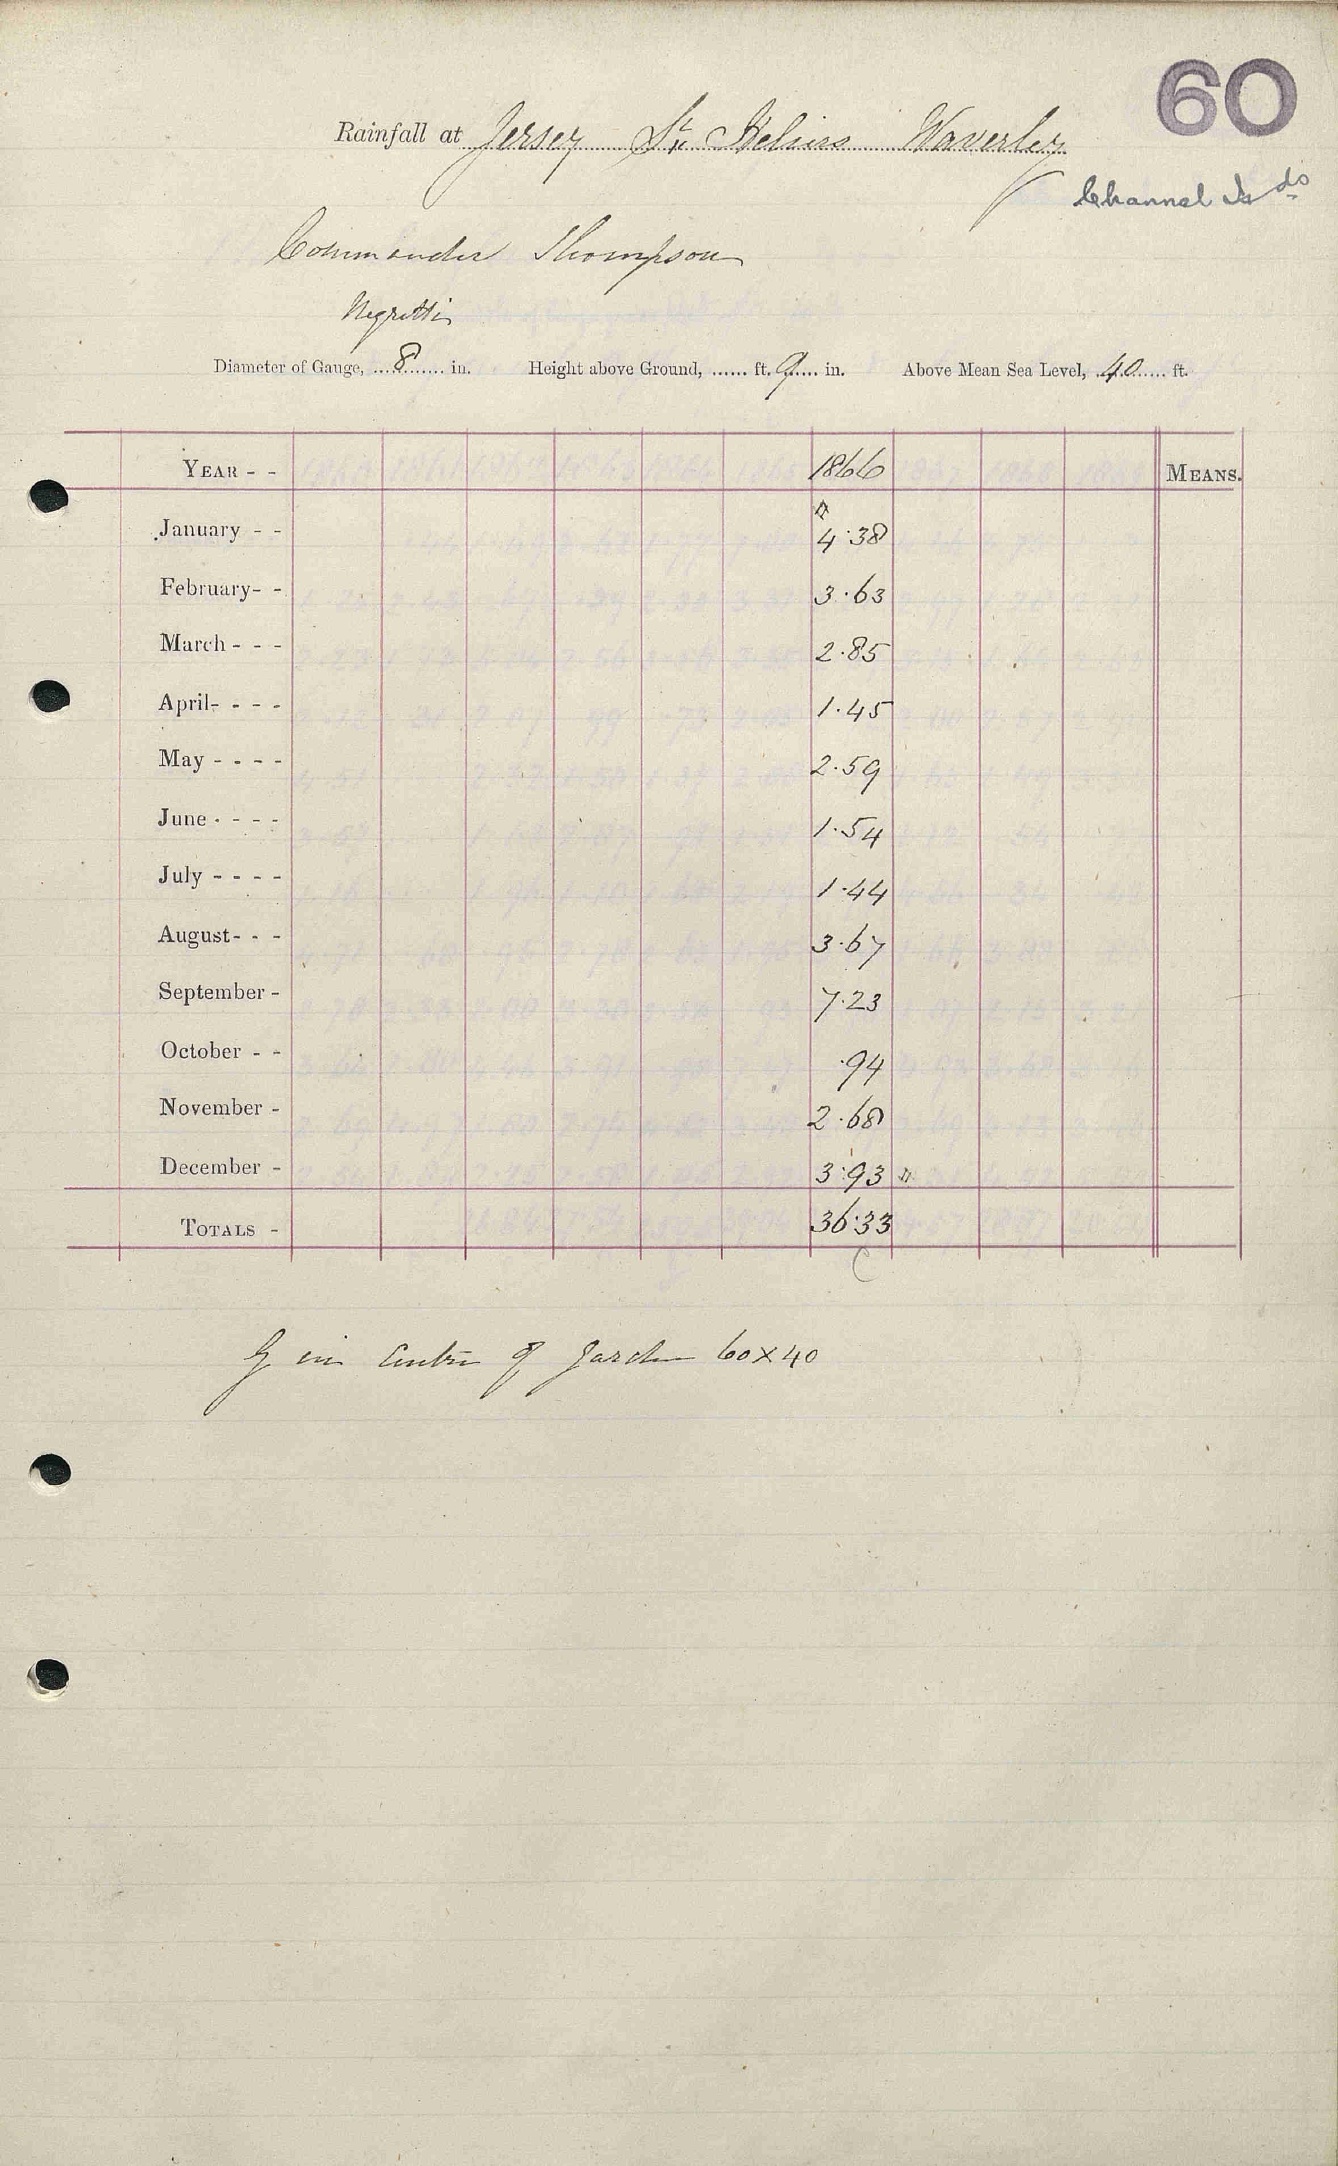 60
Rainfall at Jersey St. Heliers Waverley
Channel Isds
Commander Thompson
Negretti
Diameter of Gauge, ...8... in. Height above Ground, ...... ft. 9 in. Above Mean Sea Level, 40 ft.
YEAR - - 1866 MEANS.
January - - 4.38
February - - 3.63
March - - - 2.85
April - - - - 1.45
May - - - - 2.59
June - - - - 1.54
July - - - - 1.44
August - - - 3.67
September - 7.23
October - - .94
November - 2.68
December - 3.93
TOTALS - 36.33
C
G in centre of garden 60x40